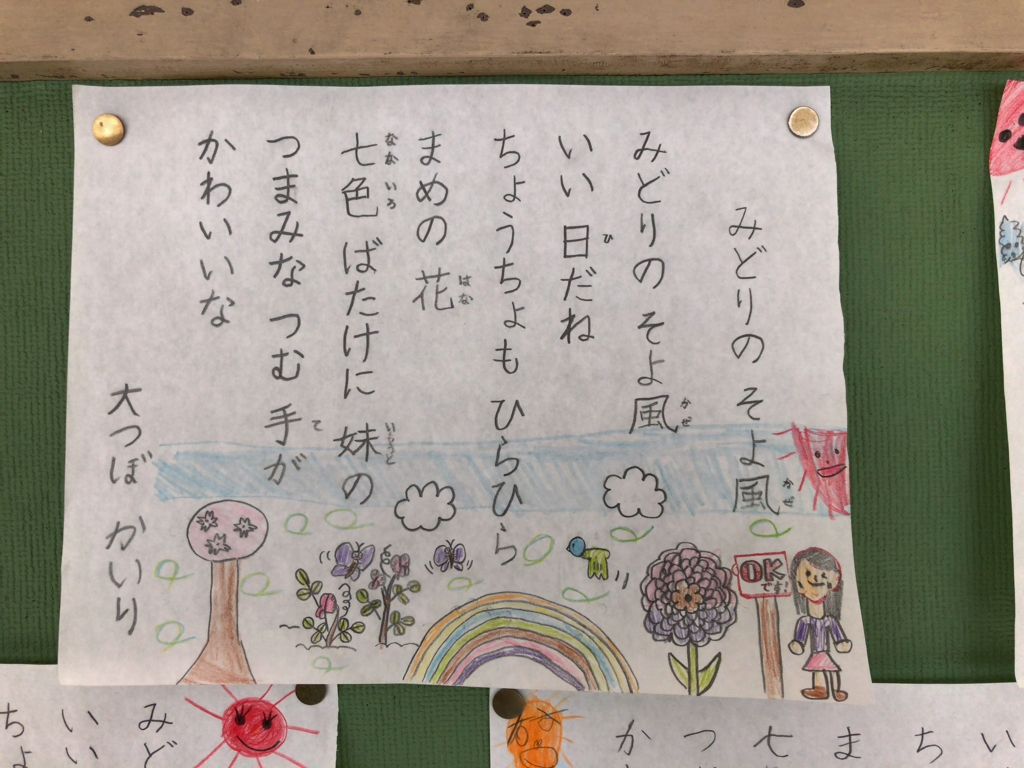 みどりの そよ風
かぜ
みどりの そよ風
かぜ
いい 日だね
ひ
ちょうちょも ひらひら
まめの 花
はな
七色 ばたけに 妹の
なないろ
いもうと
つまみな つむ 手が
て
かわいいな
大つぼ かいり
OK
です!
みど
いい
ちょ
い
ち
ま
七
つ
か